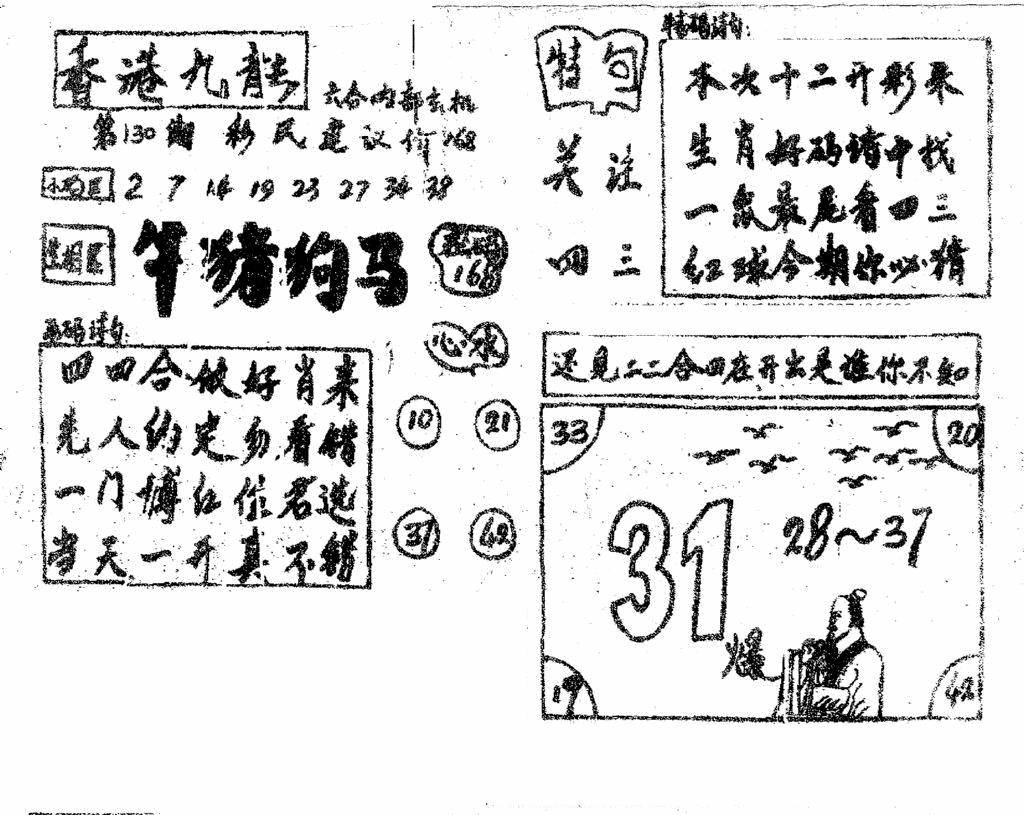 香港九龍
六合内部玄机
第130期 彩民建议价168
2 7 14 19 23 27 34 38
生肖区
牛猪狗马
168
心水
10 21
37 42
四四合做好肖来
先人约定勿看错
一门博红你君选
当天一开真不错
特句
关注
四三
本次十二开彩来
生肖好码诗中找
一众最尾看四三
红球今期你必猜
还见二二合四在开出是谁你不知
33 20
31 28~37
爆
19 42